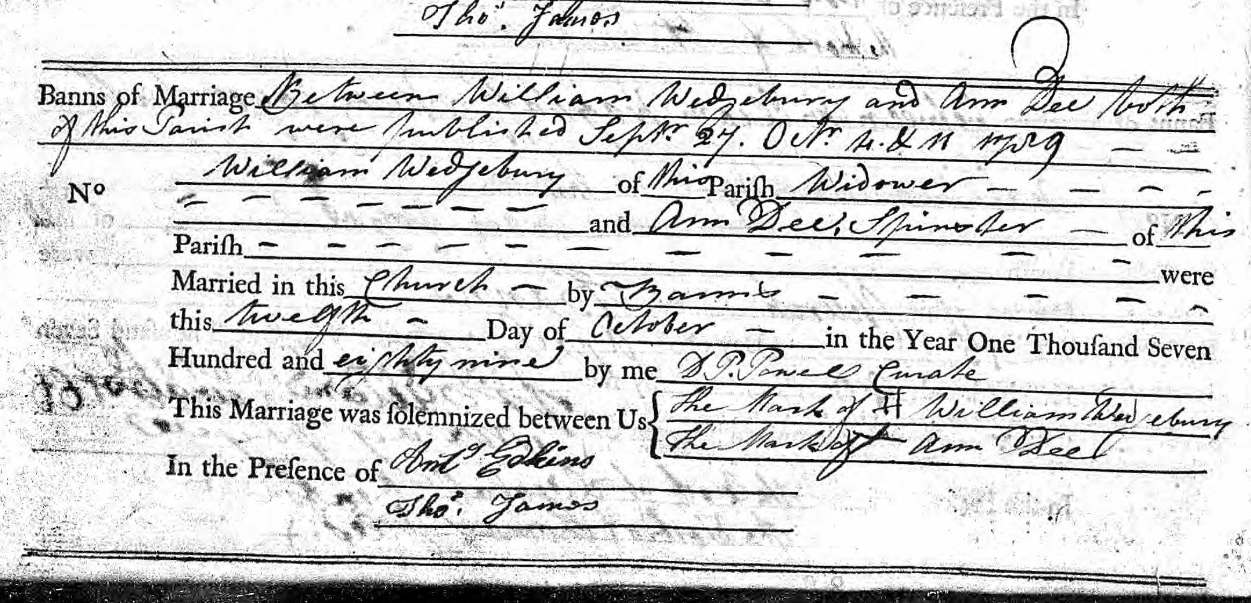 Thos. James
Banns of Marriage Between William Wedgebury and Ann Dee both
of this Parish were published Septr. 27. Octr. 4. & 11 1789 — —
No William Wedgebury of this Pariſh Widower — — — —
— — — — — — — and Ann Dee, Spinster — of this
Pariſh — — — — — — — — — were
Married in this Church — by Banns — — — — —
this twelfth — Day of October — in the Year One Thouſand Seven
Hundred and eighty nine by me D. P. Powell Curate
This Marriage was ſolemnized between Us { The Mark of H William Wedgebury
The Mark of + Ann Dee
In the Preſence of Anty Edkins
Thos. James